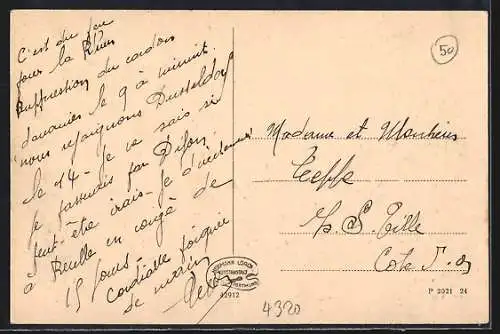 C'est du feu
pour la Rhur
Suppression du cordon
douanier le 9 à minuit.
nous rejoignons Dusseldorf
le 14 - je ne sais si
je passerais par Dijon
peut-être irais-je directement
à en congé de
15 jours.
Cordiale poignée
de main
50
Madame et Monsieur
s/ Tille
Cote d'or
42912
4320
P 2021 24